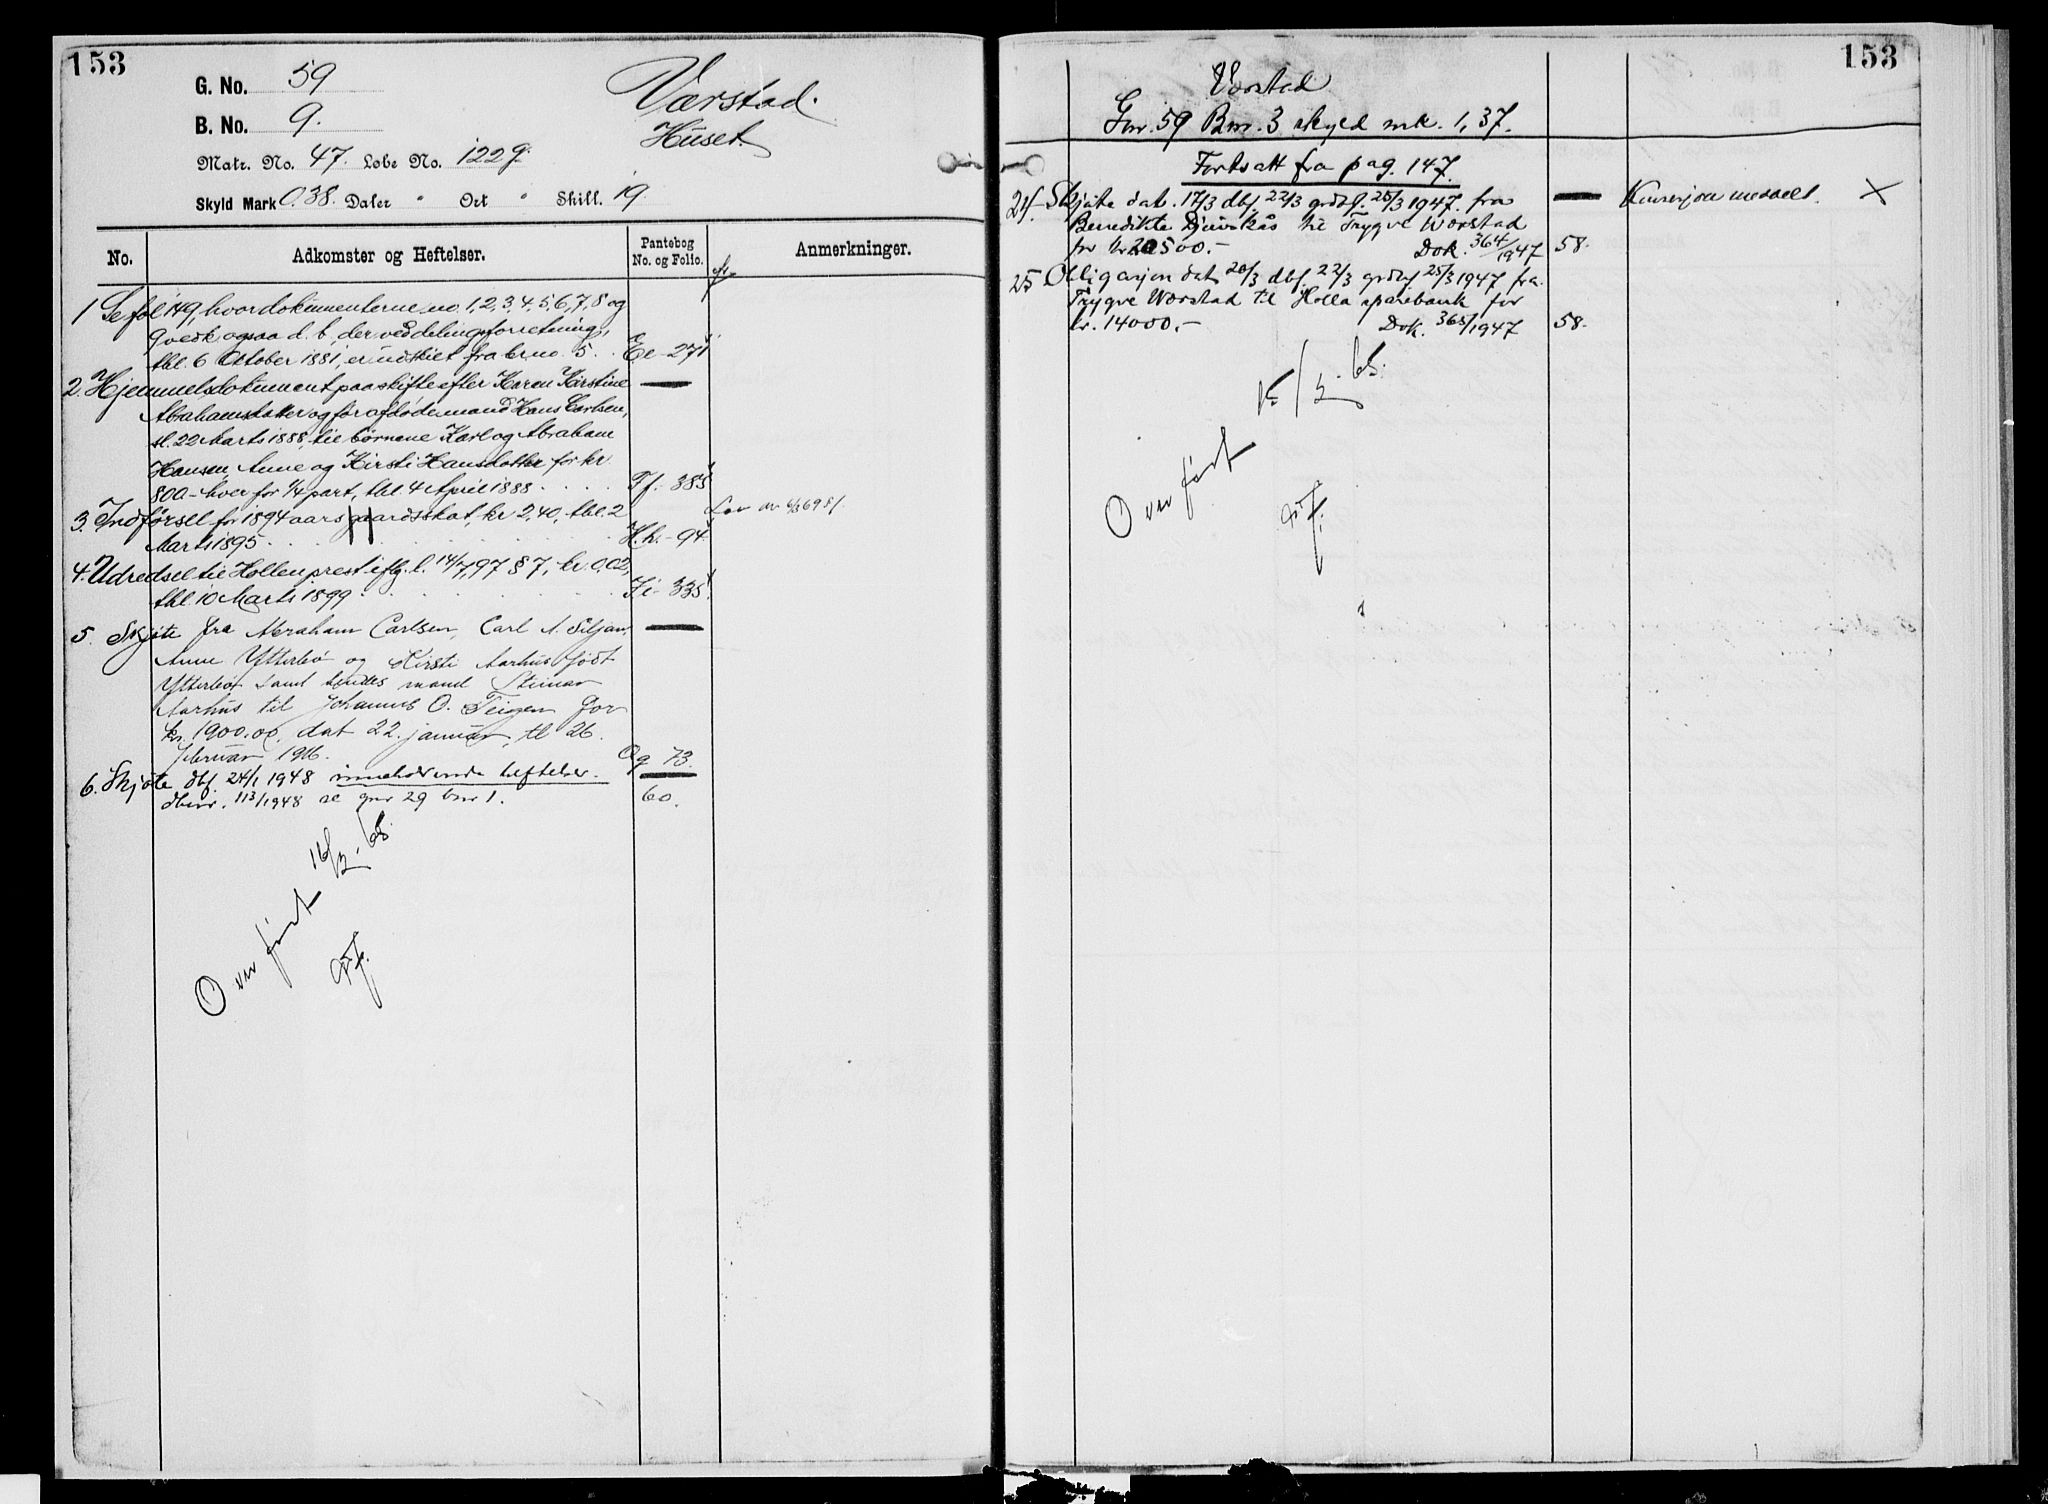 153
G. No. 59
B. No. 9.
Matr. No. 47. Løbe No. 122 g.
Skyld Mark 0.38. Daler " Ort " Skill. 19.
Værstad.
Huset.
No. Adkomster og Heftelser. Pantebog No. og Folio. Anmerkninger.
1 Se fol 149, hvor dokumenterne no. 1, 2, 3, 4, 5, 6, 7, 8 og
9 vedk ogsaa d. b., der ved delingsforretning,
thl. 6 Oktober 1881, er udskiet fra brno. 5. Ee - 271
2. Hjemmelsdokument paa skifte efter Karen Kirstine
Abrahamsdatter og før afdøde mand Hans Carlsen,
sl. 22 Marts 1888, til børnene Karl og Abraham
Hansen, Anne og Kirsti Hansdatter for kr
800 - hver for 1/4 part, thl. 4 April 1888 . . . . Ff - 385
3. Indførsel for 1894 aars gaardsskat, kr 2,40, thl. 2
Marts 1895 . . . H.h. - 94
4. Udredsel til Hollen prest iflg. l. 14/7 97 § 7, kr. 0,02,
thl. 10 Marts 1899 . . . Ii - 335
5. Skjøte fra Abraham Carlsen, Carl A. Siljan,
Anne Ytterbø og Kirsti Aarhus født
Ytterbø samt hendes mand Steinar
Aarhus til Johannes O. Teigen for
kr. 1900.00, dat 22. januar, tl 26.
februar 1916. Og 73.
6. Skjøte dbf. 24/1 1948 inneholdende heftelser.
dbnr. 113/1948 se gnr 29 bnr 1. 60.
Overført 16/3 - 68.
153
Værstad
Gnr. 59 Bnr. 3 skyld mk. 1,37.
Fortsatt fra pag. 147.
24. Skjøte dat. 17/3 dbf. 22/3 grdbf. 25/3 1947 fra
Benedikte Djuvskås til Trygve Worstad
for kr 20500.- Dok. 364/1947 58.
Konsesjon meddelt. X
25 Obligasjon dat 20/3 dbf. 22/3 grdbf 25/3 1947 fra
Trygve Worstad til Holla sparebank for
kr. 14000.- Dok. 365/1947 58.
Overført 15/3 - 68.